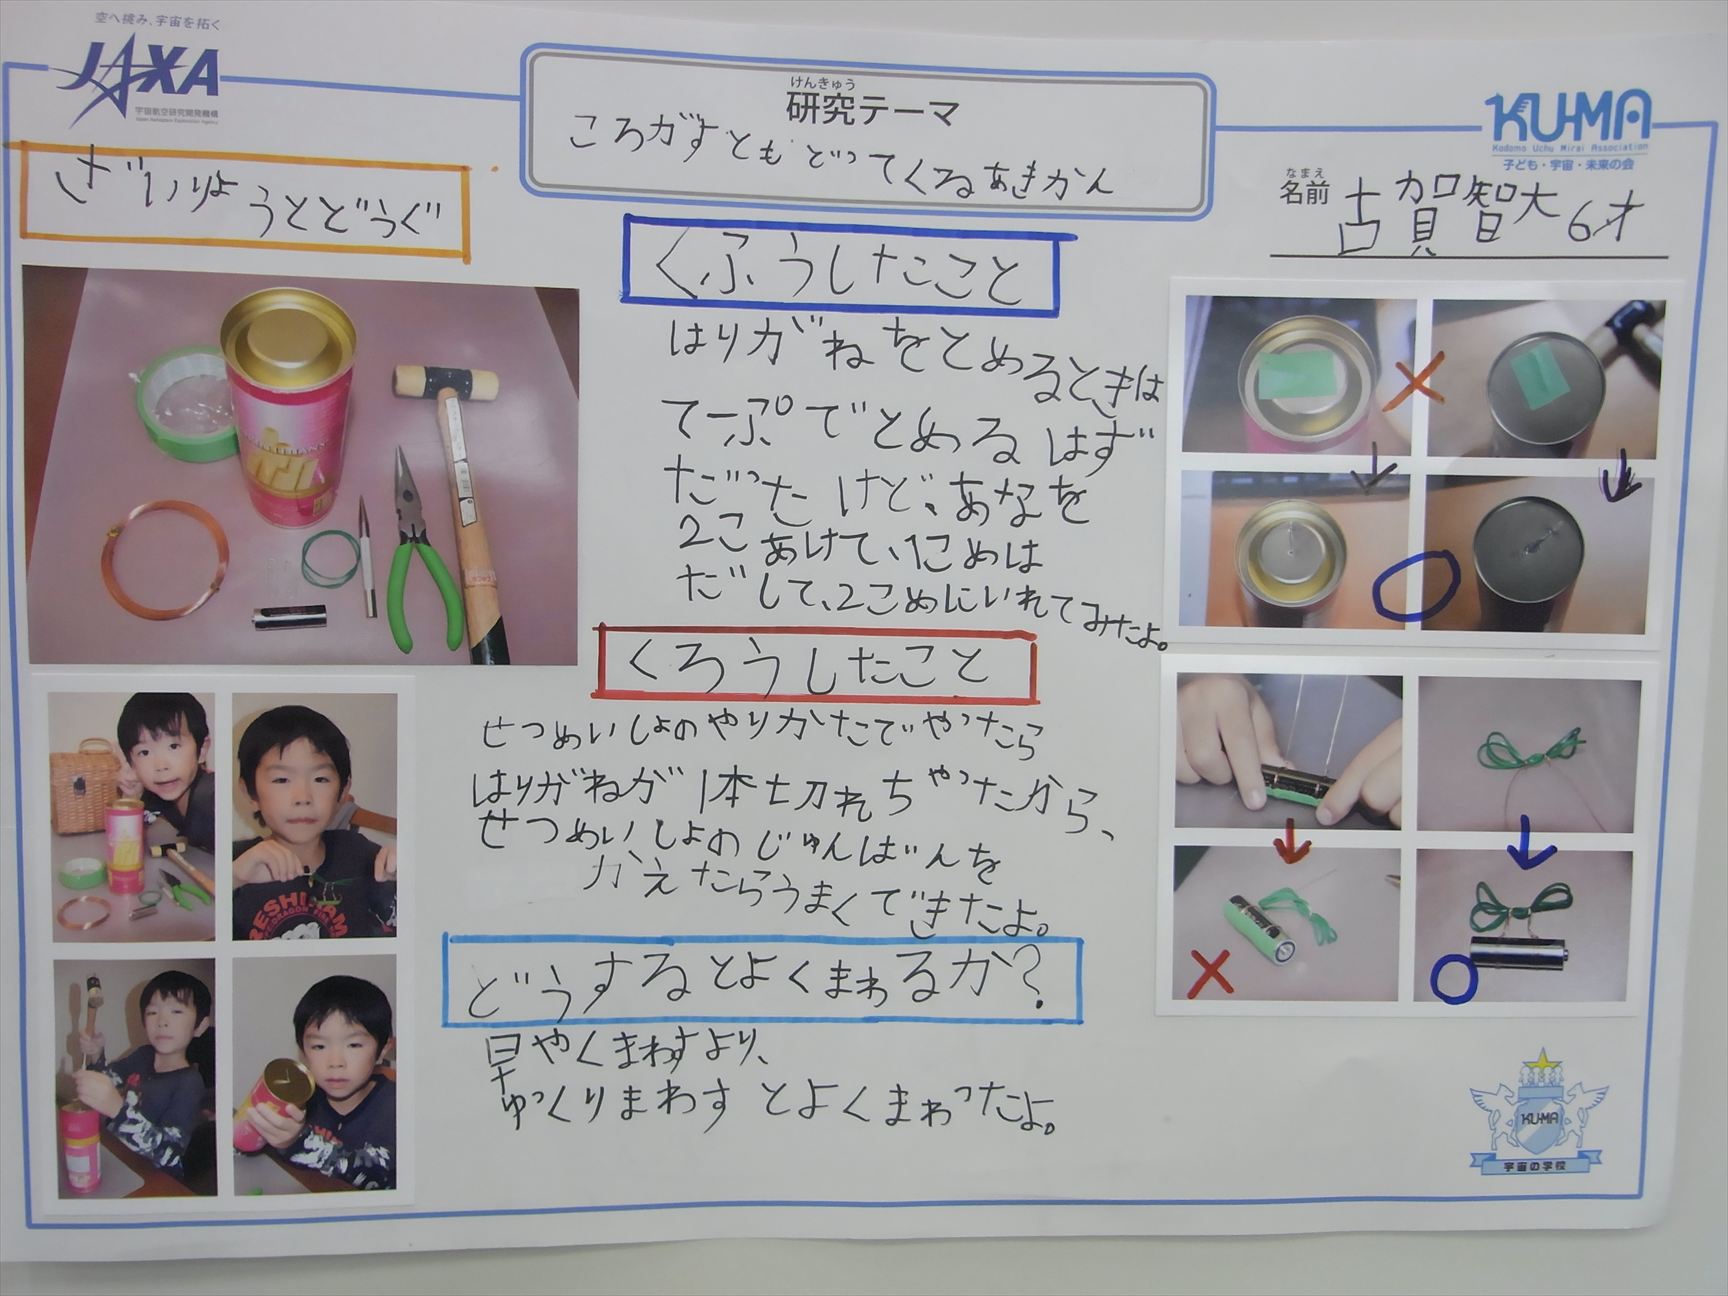 空へ挑み、宇宙を拓く
JAXA
宇宙航空研究開発機構
Japan Aerospace Exploration Agency
けんきゅう
研究テーマ
ころがすともどってくるあきかん
KU-MA
Kodomo Uchu Mirai Association
子ども・宇宙・未来の会
なまえ
名前
古賀智大6才
ざいりょうとどうぐ
くふうしたこと
はりがねをとめるときは
てーぷでとめるはず
だったけど、あなを
2こあけて、1こめは
だして、2こめにいれてみたよ。
くろうしたこと
せつめいしょのやりかたでやったら
はりがねが1本切れちゃったから、
せつめいしょのじゅんばんを
かえたらうまくできたよ。
どうするとよくまわるか?
早やくまわすより、
ゆっくりまわすとよくまわったよ。
KU-MA
宇宙の学校